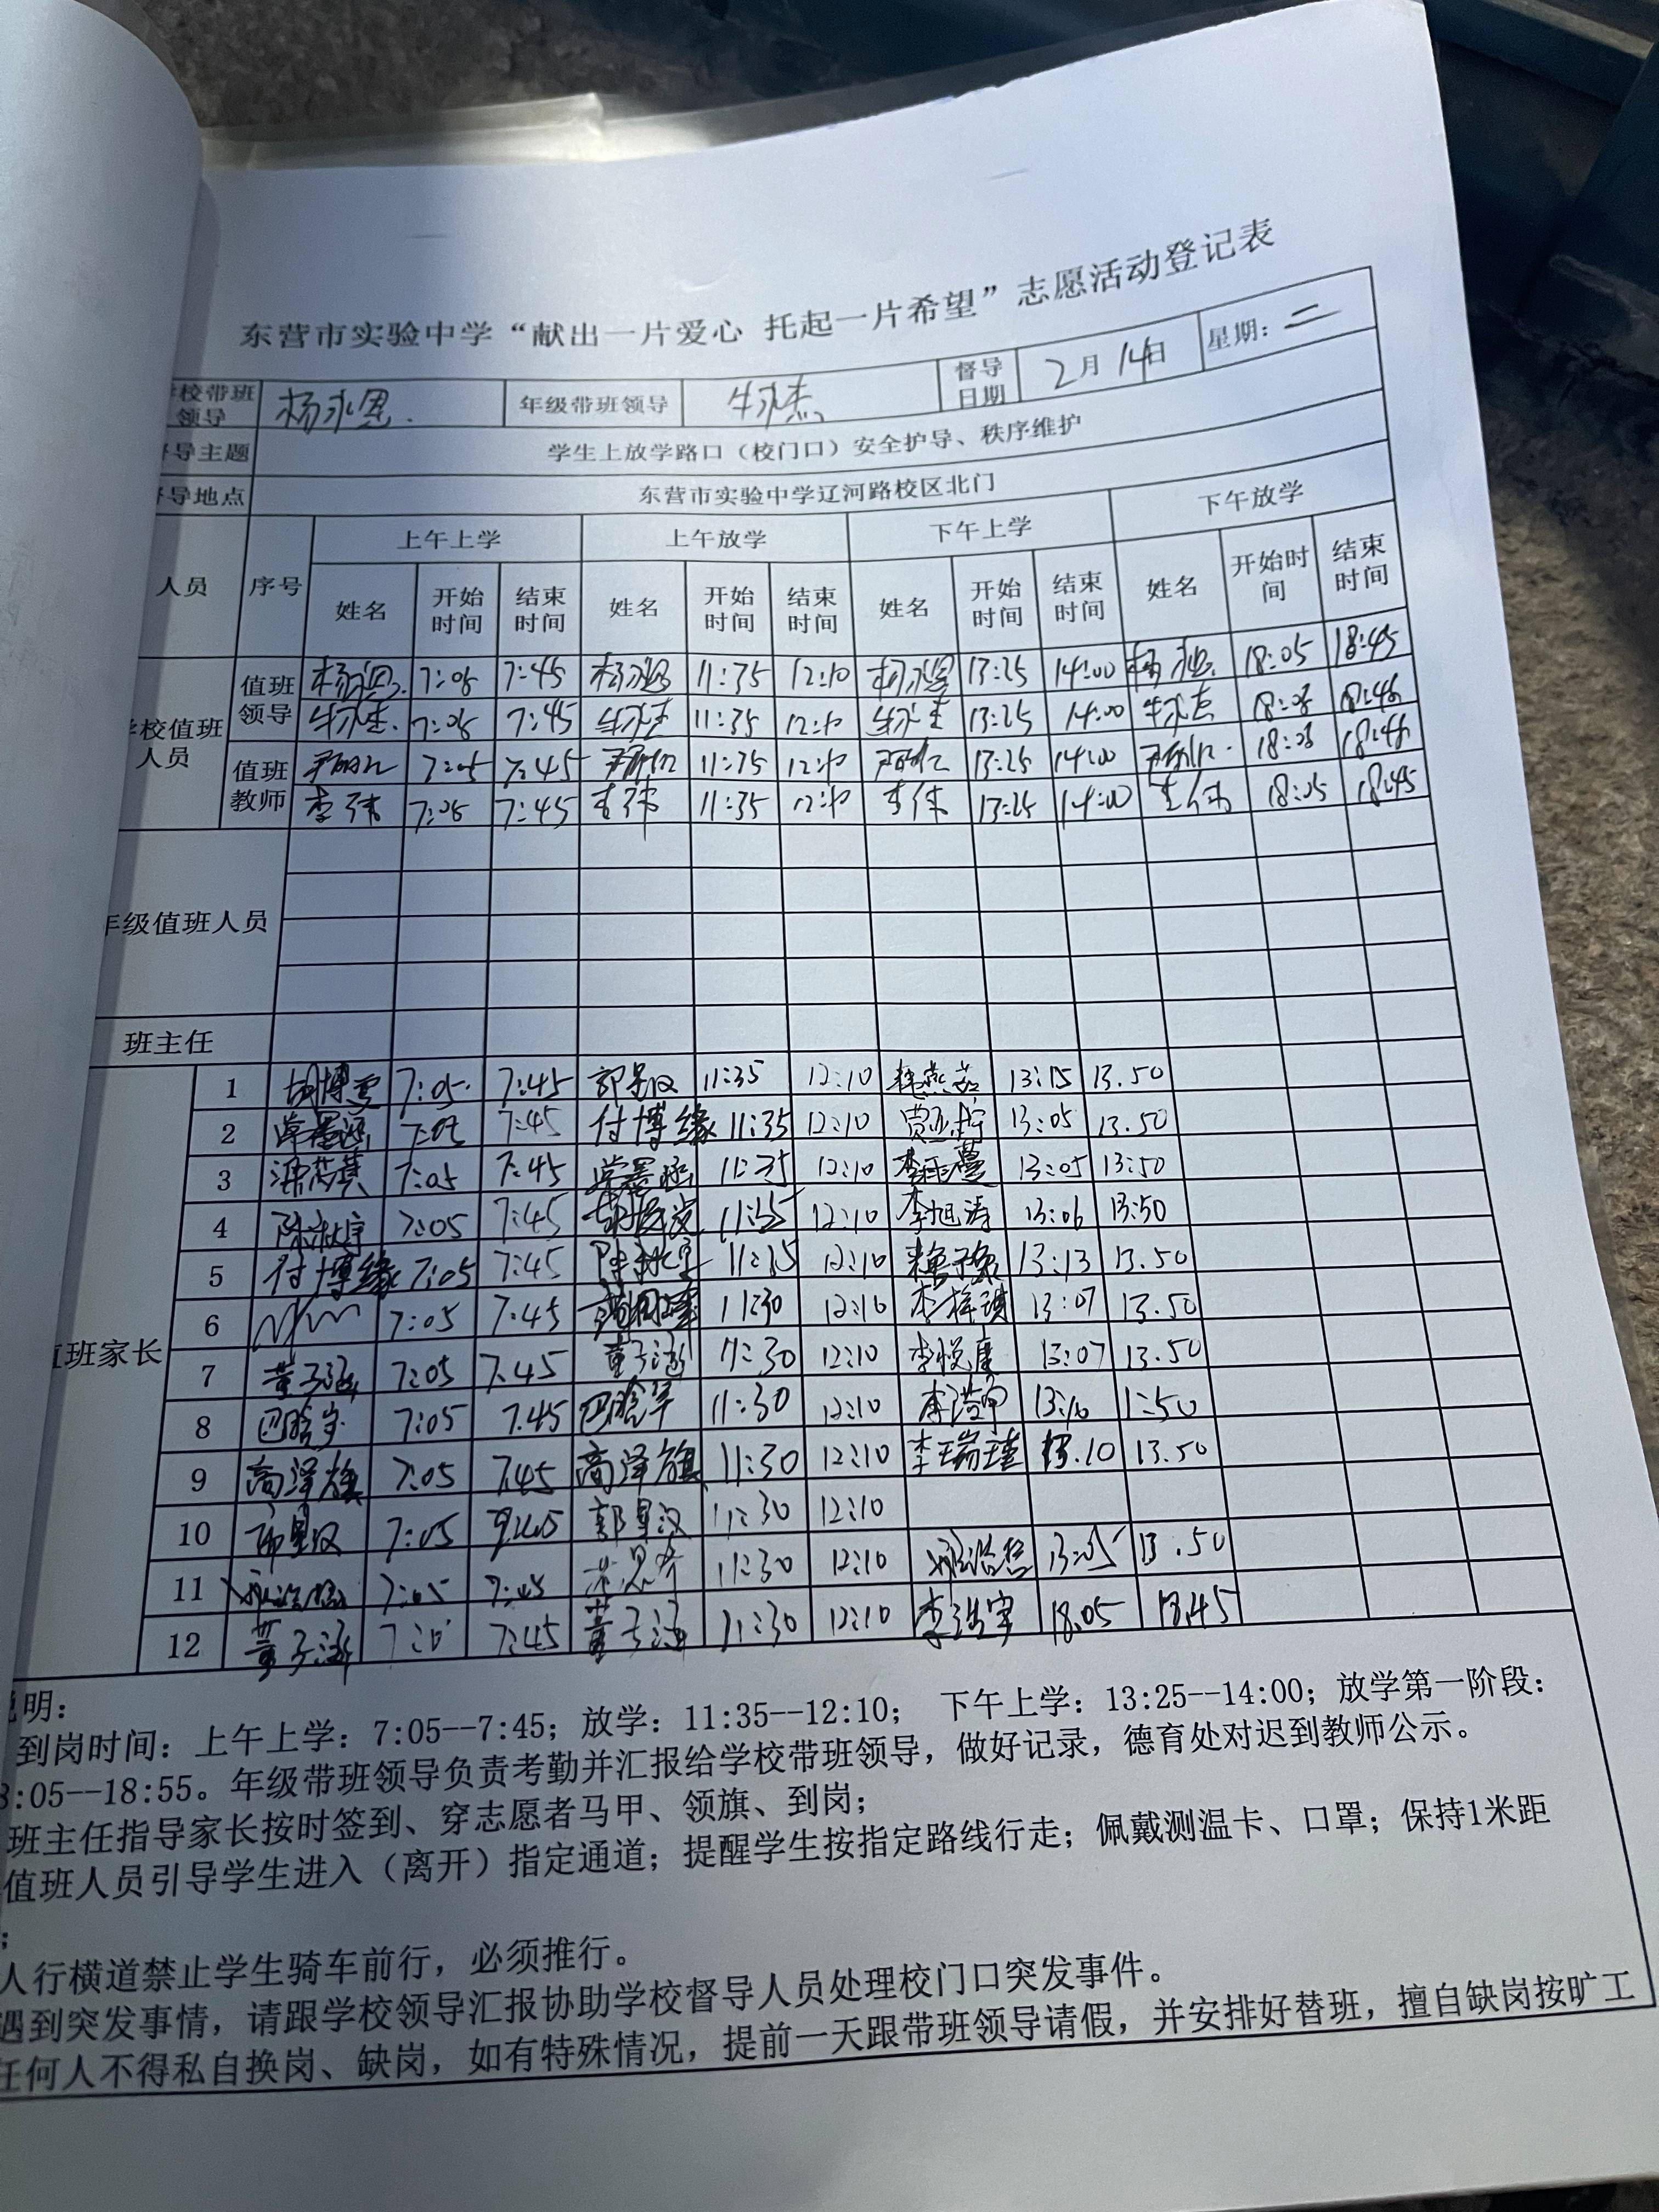 东营市实验中学“献出一片爱心 托起一片希望”志愿活动登记表
校带班领导 杨永恩 年级带班领导 牛永杰 督导日期 2月14日 星期：二
导主题 学生上放学路口（校门口）安全护导、秩序维护
导地点 东营市实验中学辽河路校区北门
人员 序号 上午上学 上午放学 下午上学 下午放学
姓名 开始时间 结束时间 姓名 开始时间 结束时间 姓名 开始时间 结束时间 姓名 开始时间 结束时间
校值班人员 值班领导 杨永恩 7:05 7:45 杨永恩 11:35 12:10 杨永恩 13:25 14:00 杨永恩 18:05 18:45
牛永杰 7:05 7:45 牛永杰 11:35 12:10 牛永杰 13:25 14:00 牛永杰 18:05 18:45
值班教师 7:05 7:45 11:35 12:10 13:25 14:00 18:05 18:45
李伟 7:05 7:45 李伟 11:35 12:10 李伟 13:25 14:00 李伟 18:05 18:45
年级值班人员
班主任
班家长
1 胡博雯 7:05 7:45 郭星汉 11:35 12:10 13:15 13.50
2 7:05 7:45 付博缘 11:35 12:10 13:05 13.50
3 梁芯淇 7:05 7:45 11:35 12:10 13:05 13:50
4 7:05 7:45 11:35 12:10 李旭涛 13:06 13:50
5 付博缘 7:05 7:45 11:35 12:10 13:13 13.50
6 7:05 7:45 11:30 12:10 李梓琪 13:07 13.50
7 董子涵 7:05 7.45 董子涵 11:30 12:10 李悦康 13:07 13.50
8 7:05 7.45 11:30 12:10 13:10 1:50
9 高泽旗 7:05 7.45 高泽旗 11:30 12:10 李瑞瑾 13.10 13.50
10 郭星汉 7:05 郭星汉 11:30 12:10
11 7:05 7:45 11:30 12:10 13:05 13.50
12 董子涵 7:45 董子涵 11:30 12:10 李浩宇 18.05 18.45
说明：
到岗时间：上午上学：7:05--7:45；放学：11:35--12:10； 下午上学：13:25--14:00；放学第一阶段：
8:05--18:55。年级带班领导负责考勤并汇报给学校带班领导，做好记录，德育处对迟到教师公示。
班主任指导家长按时签到、穿志愿者马甲、领旗、到岗；
值班人员引导学生进入（离开）指定通道；提醒学生按指定路线行走；佩戴测温卡、口罩；保持1米距
；
人行横道禁止学生骑车前行，必须推行。
遇到突发事情，请跟学校领导汇报协助学校督导人员处理校门口突发事件。
任何人不得私自换岗、缺岗，如有特殊情况，提前一天跟带班领导请假，并安排好替班，擅自缺岗按旷工